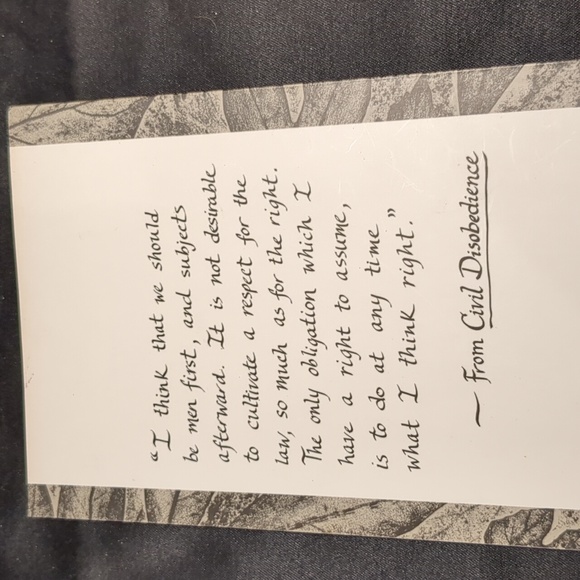 “I think that we should
be men first, and subjects
afterward. It is not desirable
to cultivate a respect for the
law, so much as for the right.
The only obligation which I
have a right to assume,
is to do at any time
what I think right.”
~ From Civil Disobedience